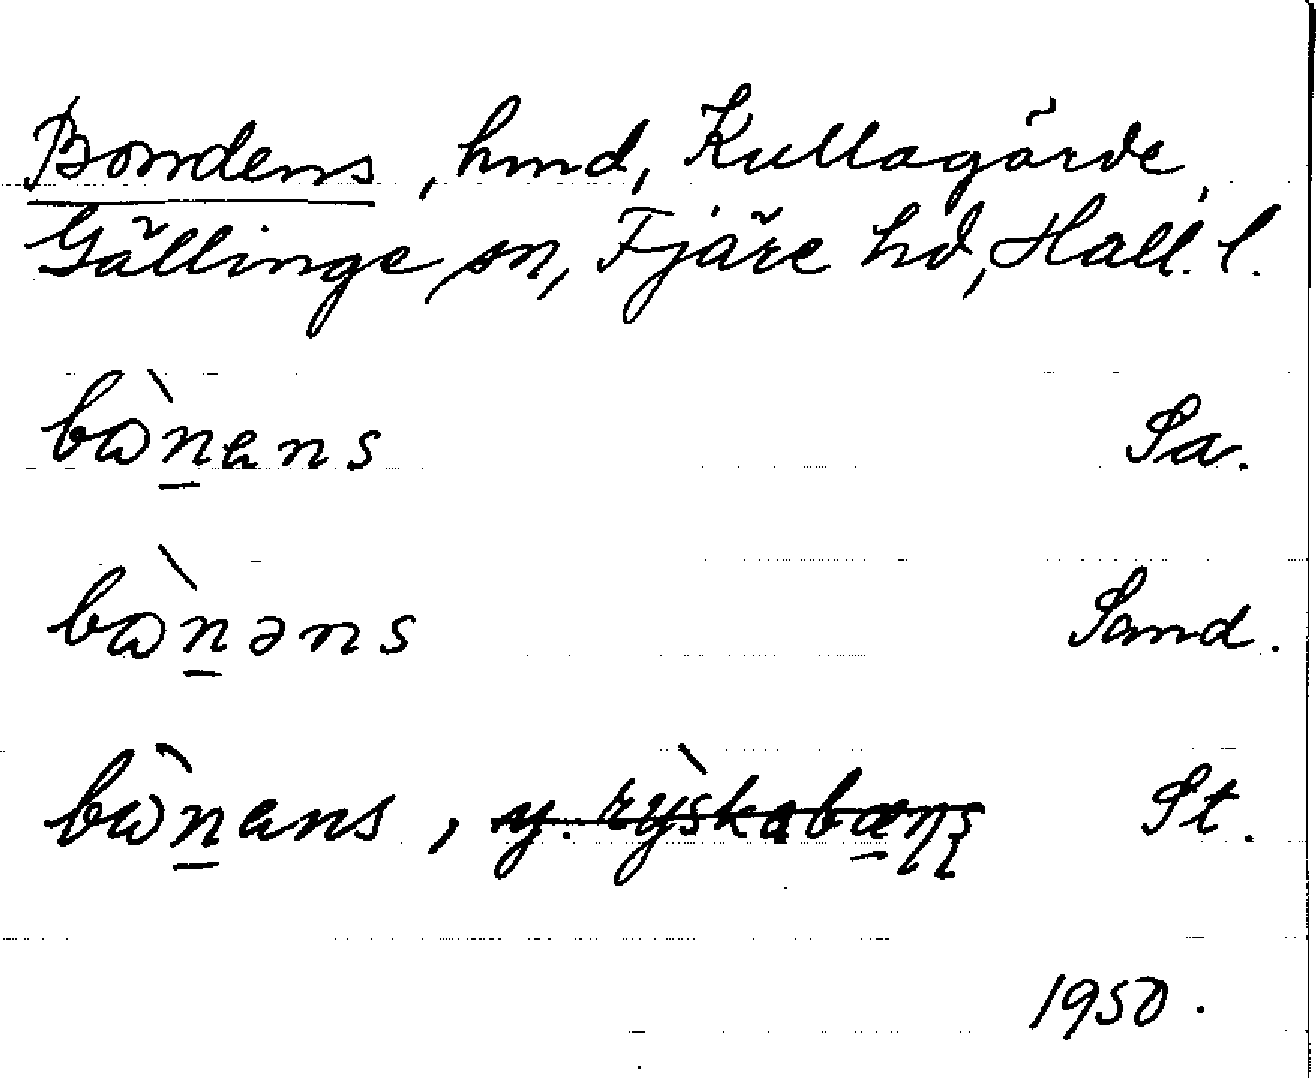 Bondens, hmd, Kullagärde,
Gällinge sn, Fjäre hd, Hall. l.
bὼn̲ans Sa.
bὼn̲əns Sand.
bὼn̲ans, St.
1950.